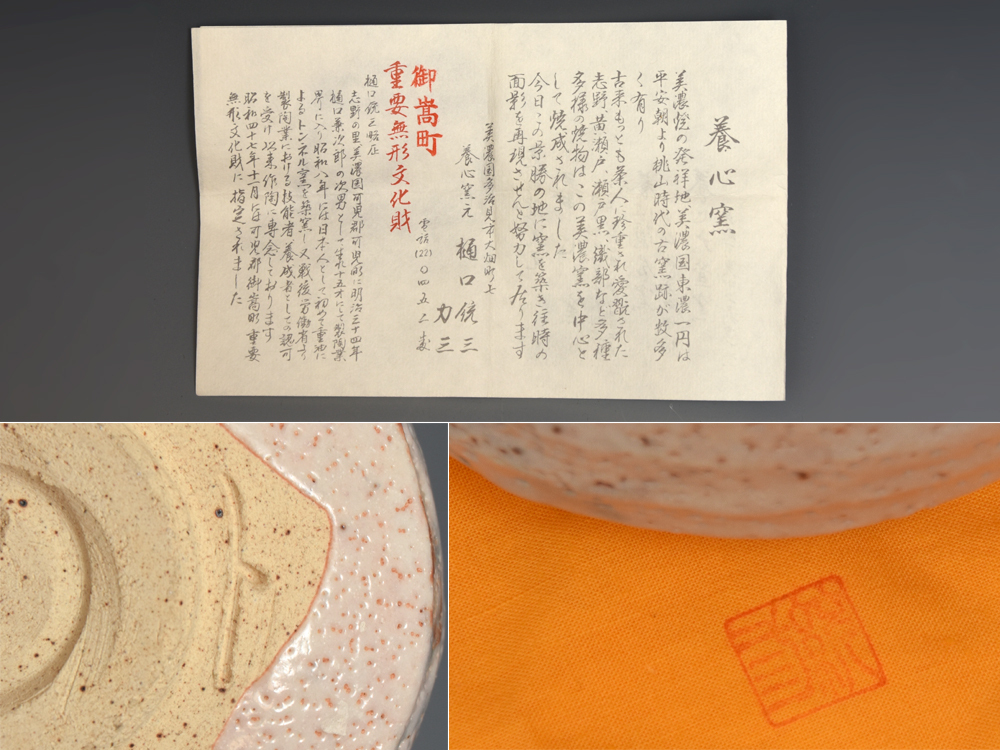 養心窯
美濃焼の発祥地美濃国東濃一円は
平安朝より桃山時代の古窯跡が数多
く有り
古来もっとも茶人に珍重され愛翫された
志野、黄瀬戸、瀬戸黒、織部など多種
多様の焼物はこの美濃窯を中心と
して焼成されました
今日この景勝の地に窯を築き往時の
面影を再現させんと努力して居ります
美濃国多治見市大畑町七
養心窯元 樋口 三
力三
電話(22)〇四五
御嵩町
重要無形文化財
樋口
志野の里美濃国可児郡可児町に明治三十四年
樋口兼次郎の次男として生れ十五才にして製陶業
界に入り昭和八年には日本人として初めて重油に
よるトンネル窯を築窯し又戦後労働省より
製陶業における技能者養成者としての認可
を受け以来作陶に専念しております
昭和四十七年十一月には可児郡御嵩町重要
無形文化財に指定されました